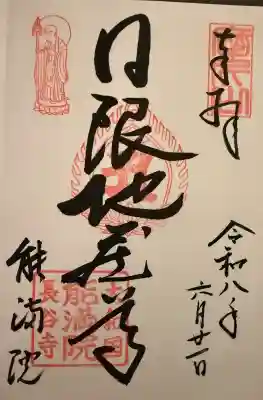 奉拝
日限地蔵尊
令和八年
六月廿一日
能満院
大和国
能満院
長谷寺